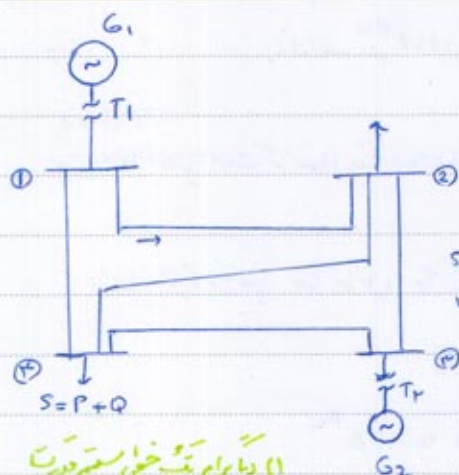 G₁
~
T1
① ②
S
④ ③
S=P+Q
T۲
~
G2
۱) دیاگرام تک خطی سیستم قدرت